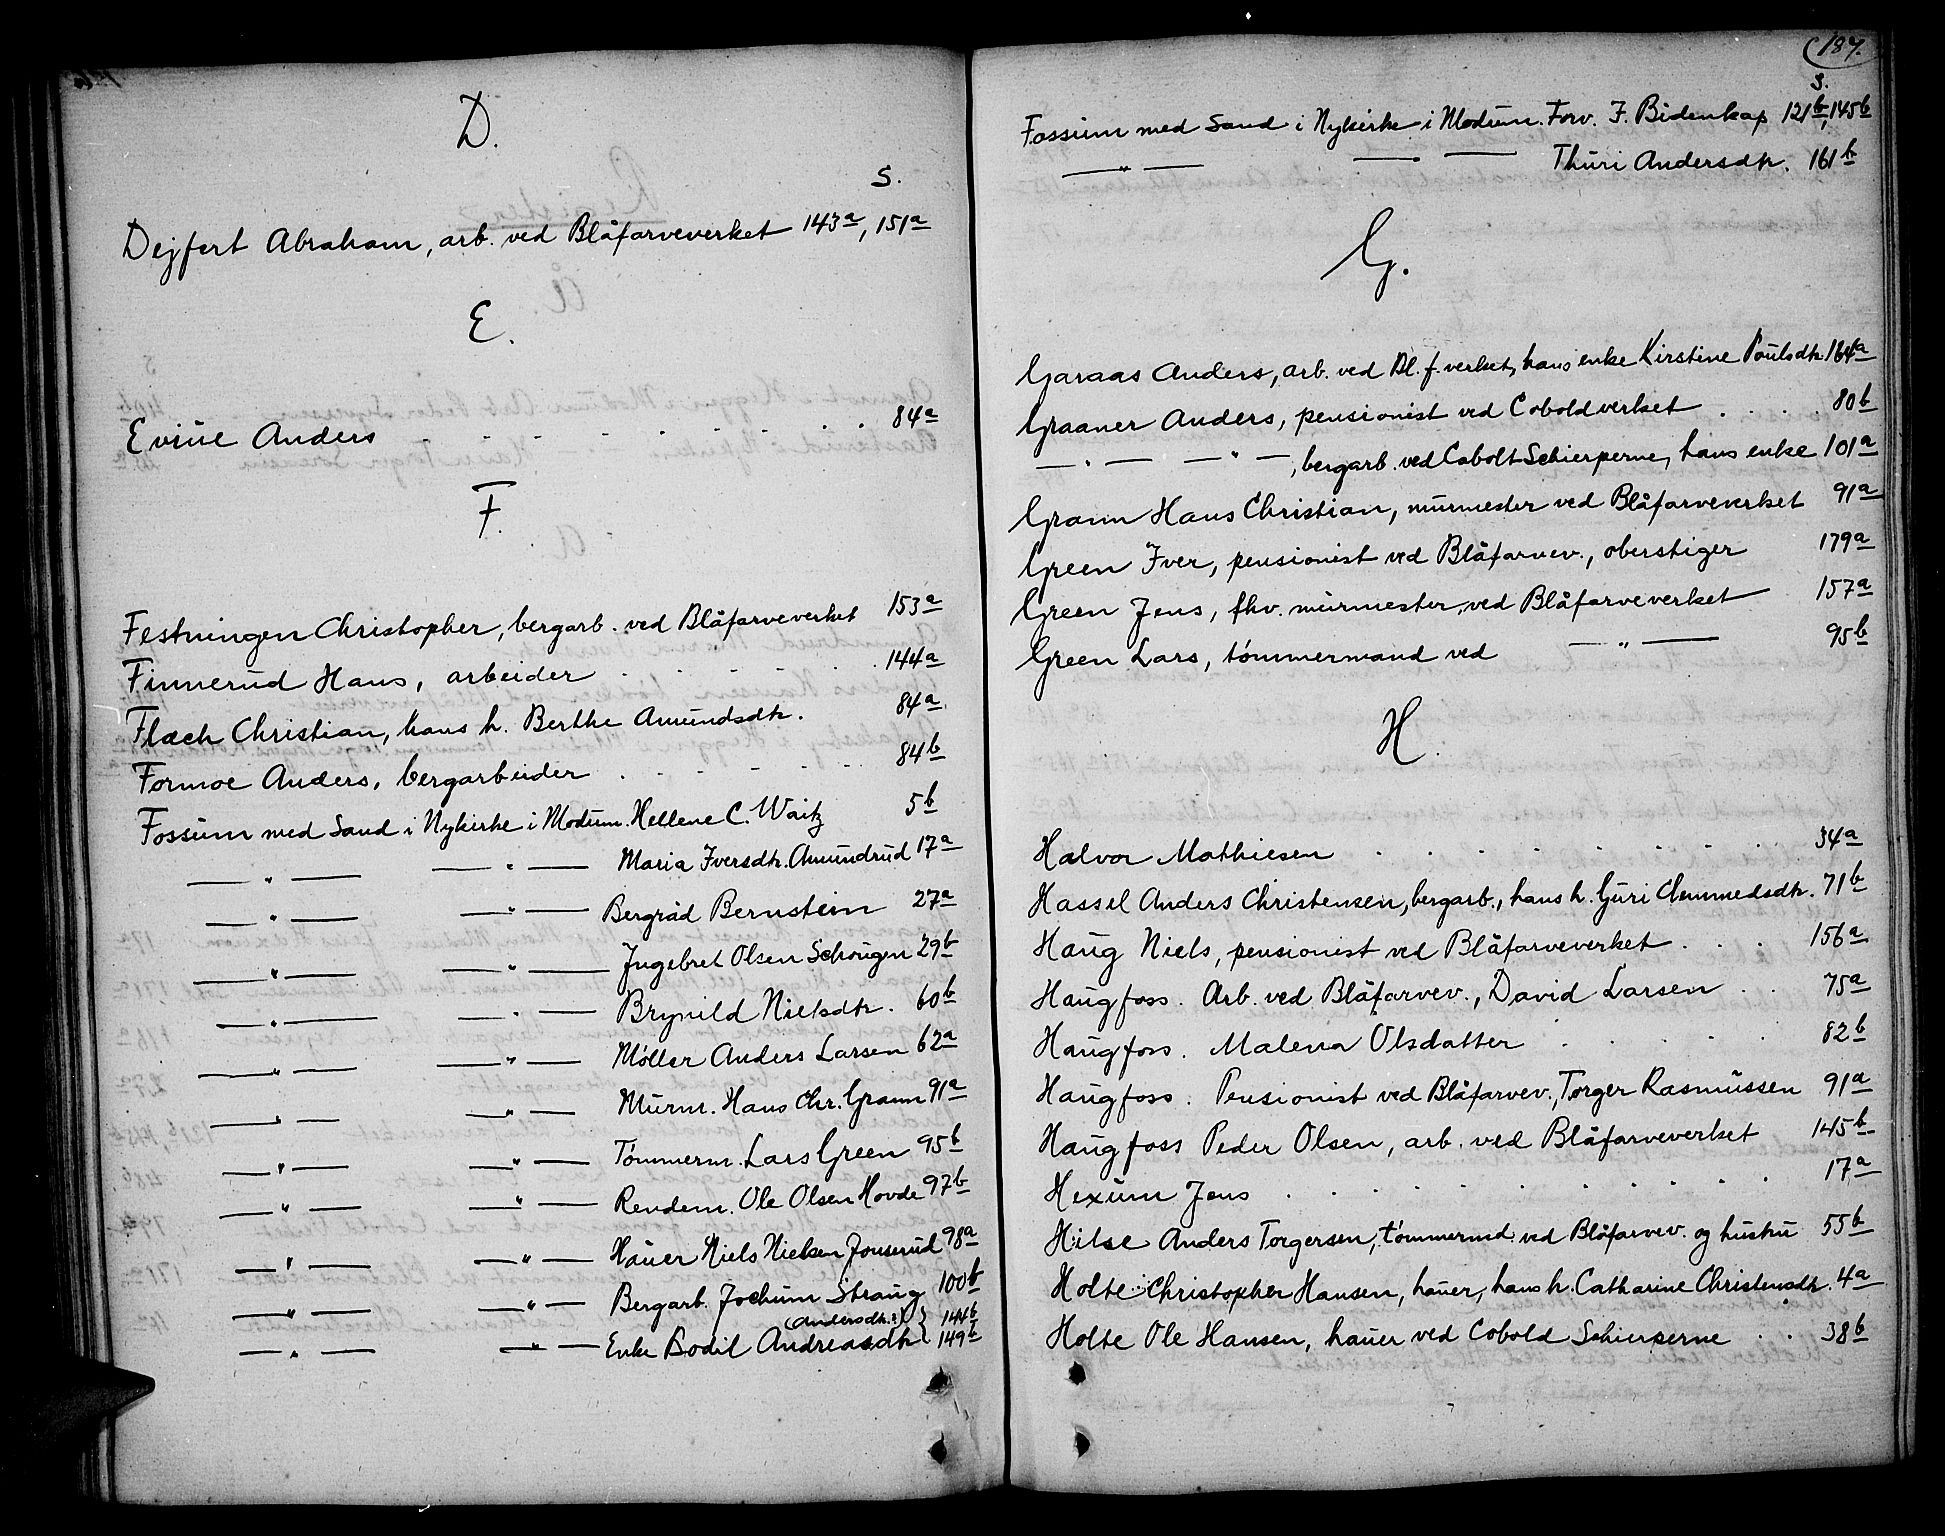 D.
S.
Dejfert Abraham, arb. ved Blåfarveverket 143a, 151a
E.
Evjue Anders . . . . . . . . . . 84a
F.
Festningen Christopher, bergarb. ved Blåfarveverket 153a
Finnerud Hans, arbeider . . . . . 144a
Flæch Christian, hans h. Berthe Amundsdtr. 84a
Formoe Anders, bergarbeider . . . . . . 84b
Fossum med Sand i Nykirke i Modum. Hellene C. Waitz 5b
—„— —„— Maria Iversdtr. Amundrud 17a
—„— —„— Bergråd Bernstein 27a
—„— —„— Ingebret Olsen Schougen 29b
—„— —„— Brynild Nielsdtr. 60b
—„— —„— Møller Anders Larsen 62a
—„— —„— Murm. Hans Chr. Grann 91a
—„— —„— Tømmerm. Lars Green 95b
—„— —„— Rendem. Ole Olsen Hovde 97b
—„— —„— Hauer Niels Nielsen Jonserud 98a
—„— —„— Bergarb. Jochum Straug 100b
—„— —„— Enke Bodil Andreasdtr (Andersdtr.?) } 144b 149b
187.
S.
Fossum med Sand i Nykirke i Modum. Forv. F. Bidenkap 121b, 145b
—„— —„— Thuri Andersdtr. 161b
G.
Garaas Anders, arb. ved Bl.f.verket, hans enke Kirstine Poulsdtr 164a
Graaner Anders, pensionist ved Coboldverket . . . . 80b
—„— —„—, bergarb. ved Cobolt Schierperne, hans enke 101a
Grann Hans Christian, murmester ved Blåfarveverket 91a
Green Iver, pensionist ved Blåfarvev., oberstiger 179a
Green Jens, fhv. murmester, ved Blåfarveverket 157a
Green Lars, tømmermand ved —„— 95b
H.
Halvor Mathiesen . . . . . . . . . . 34a
Hassel Anders Christensen, bergarb., hans h. Guri Clemmedsdtr. 71b
Haug Niels, pensionist ved Blåfarveverket . . . 156a
Haugfoss. Arb. ved Blåfarvev., David Larsen . . 75a
Haugfoss. Malena Olsdatter . . . . . 82b
Haugfoss. Pensionist ved Blåfarvev., Torger Rasmussen 91a
Haugfoss Peder Olsen, arb. ved Blåfarveverket 145b
Hexum Jens . . . . . . . . . . . 17a
Hilse Anders Torgersen, tømmermd. ved Blåfarvev. og hustru 55b
Holte Christopher Hansen, hauer, hans h. Catharine Christensdtr. 4a
Holte Ole Hansen, hauer ved Cobold Schierperne . . 38b